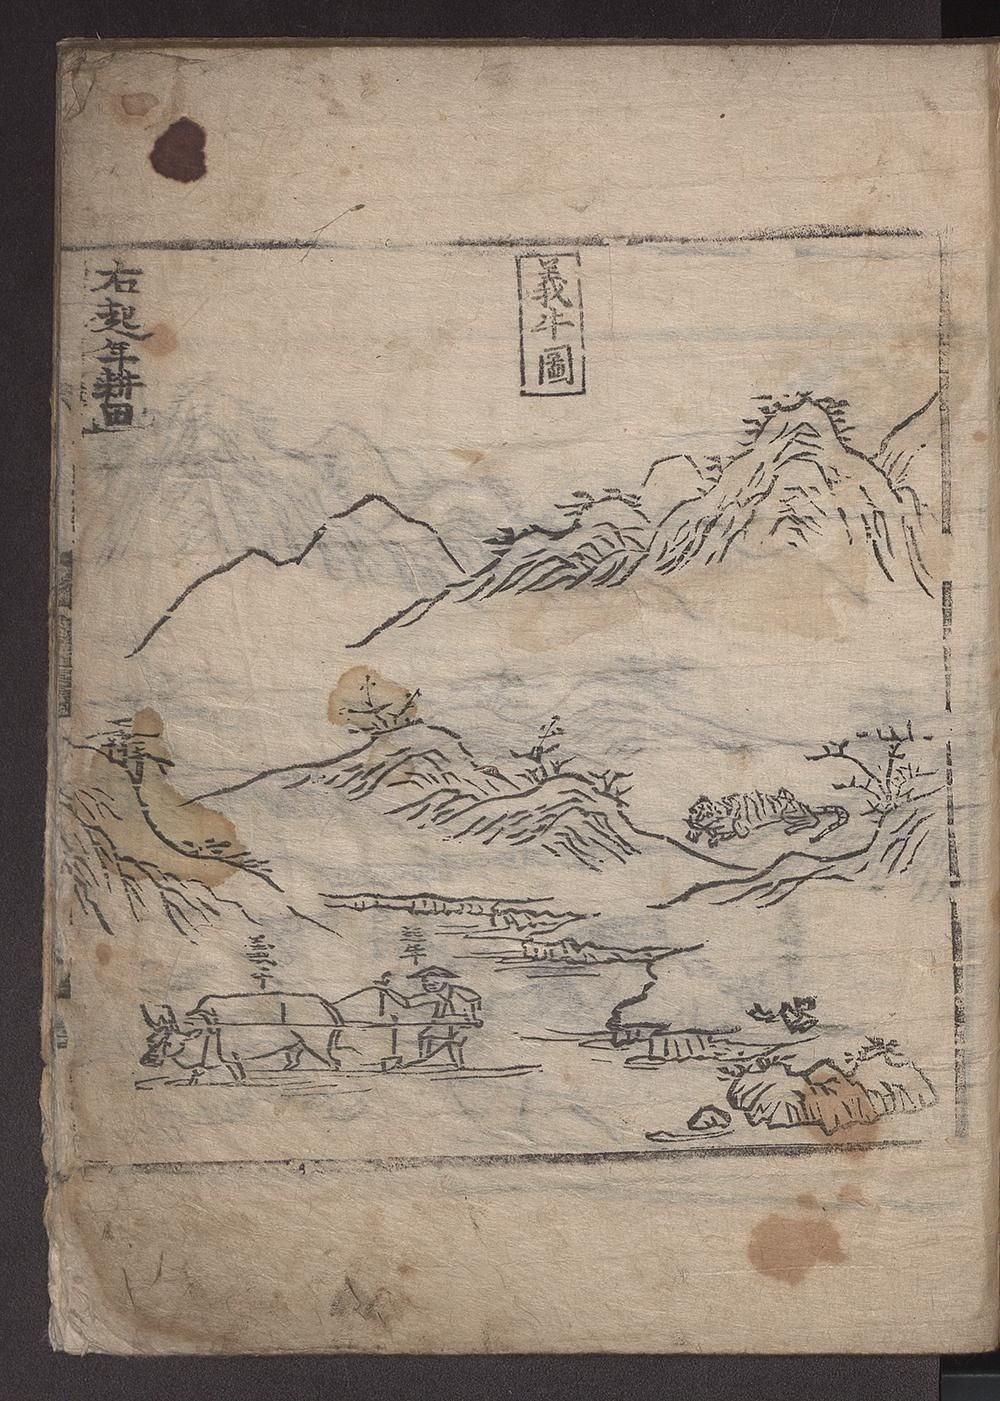 義牛圖
起年
義牛
右起年耕田